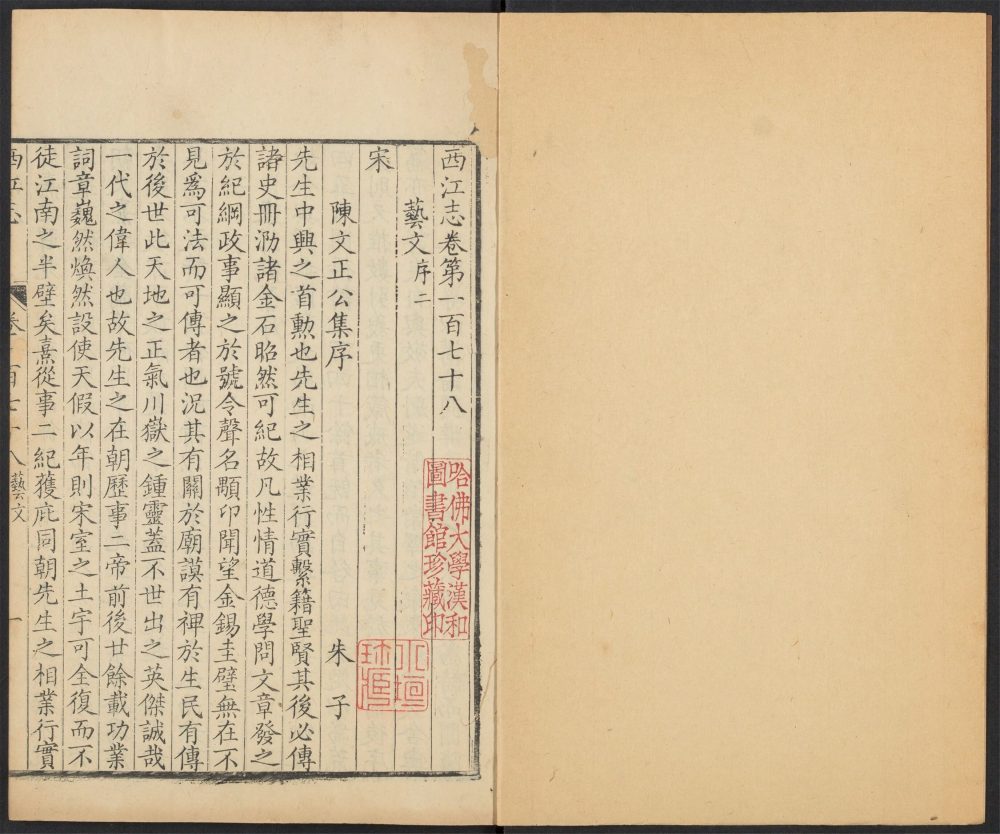 西江志卷第一百七十八
藝文序二
宋
陳文正公集序 朱子
先生中興之首勲也先生之相業行實繫籍聖賢其後必傳
諸史冊泐諸金石昭然可紀故凡性情道德學問文章發之
於紀綱政事顯之於號令聲名顒卬聞望金錫圭璧無在不
見爲可法而可傳者也況其有關於廟謨有裨於生民有傳
於後世此天地之正氣川嶽之鍾靈蓋不世出之英傑誠哉
一代之偉人也故先生之在朝歷事二帝前後廿餘載功業
詞章巍然煥然設使天假以年則宋室之土宇可全復而不
徒江南之半壁矣熹從事二紀獲庇同朝先生之相業行實
西江志 卷一百七十八藝文 一
哈佛大學漢和
圖書館珍藏印